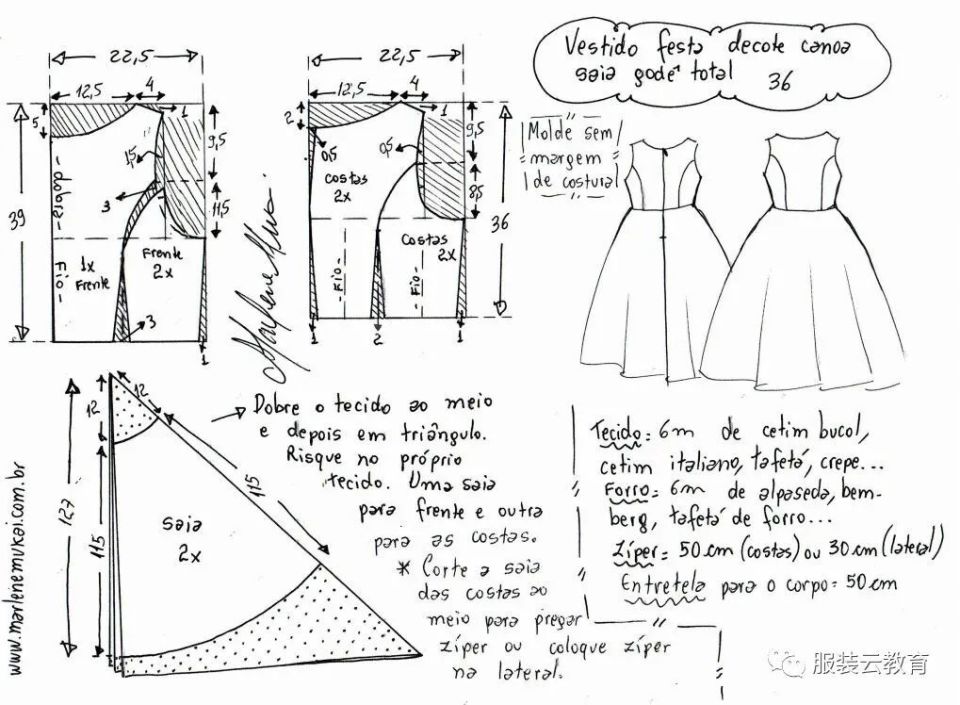 Vestido festa decote canoa
saia godê total 36
Molde sem
margem
de costura
22,5
12,5
4
1
5
9,5
1,5
3
11,5
39
dobra
Fio
1x
Frente
Frente
2x
3
1
22,5
12,5
4
1
2
9,5
0,5
0,5
costas
2x
8,5
36
Costas
2x
Fio
Fio
1
2
1
12
12
127
115
115
saia
2x
www.marlenemukai.com.br
→ Dobre o tecido ao meio
e depois em triângulo.
Risque no próprio
tecido. Uma saia
para frente e outra
para as costas.
* Corte a saia
das costas ao
meio para pregar
zíper ou coloque zíper
na lateral.
Tecido = 6m de cetim bucol,
cetim italiano, tafetá, crepe...
Forro = 6m de alpaseda, bem-
berg, tafetá de forro...
Zíper = 50cm (costas) ou 30cm (lateral)
Entretela para o corpo = 50cm
服装云教育